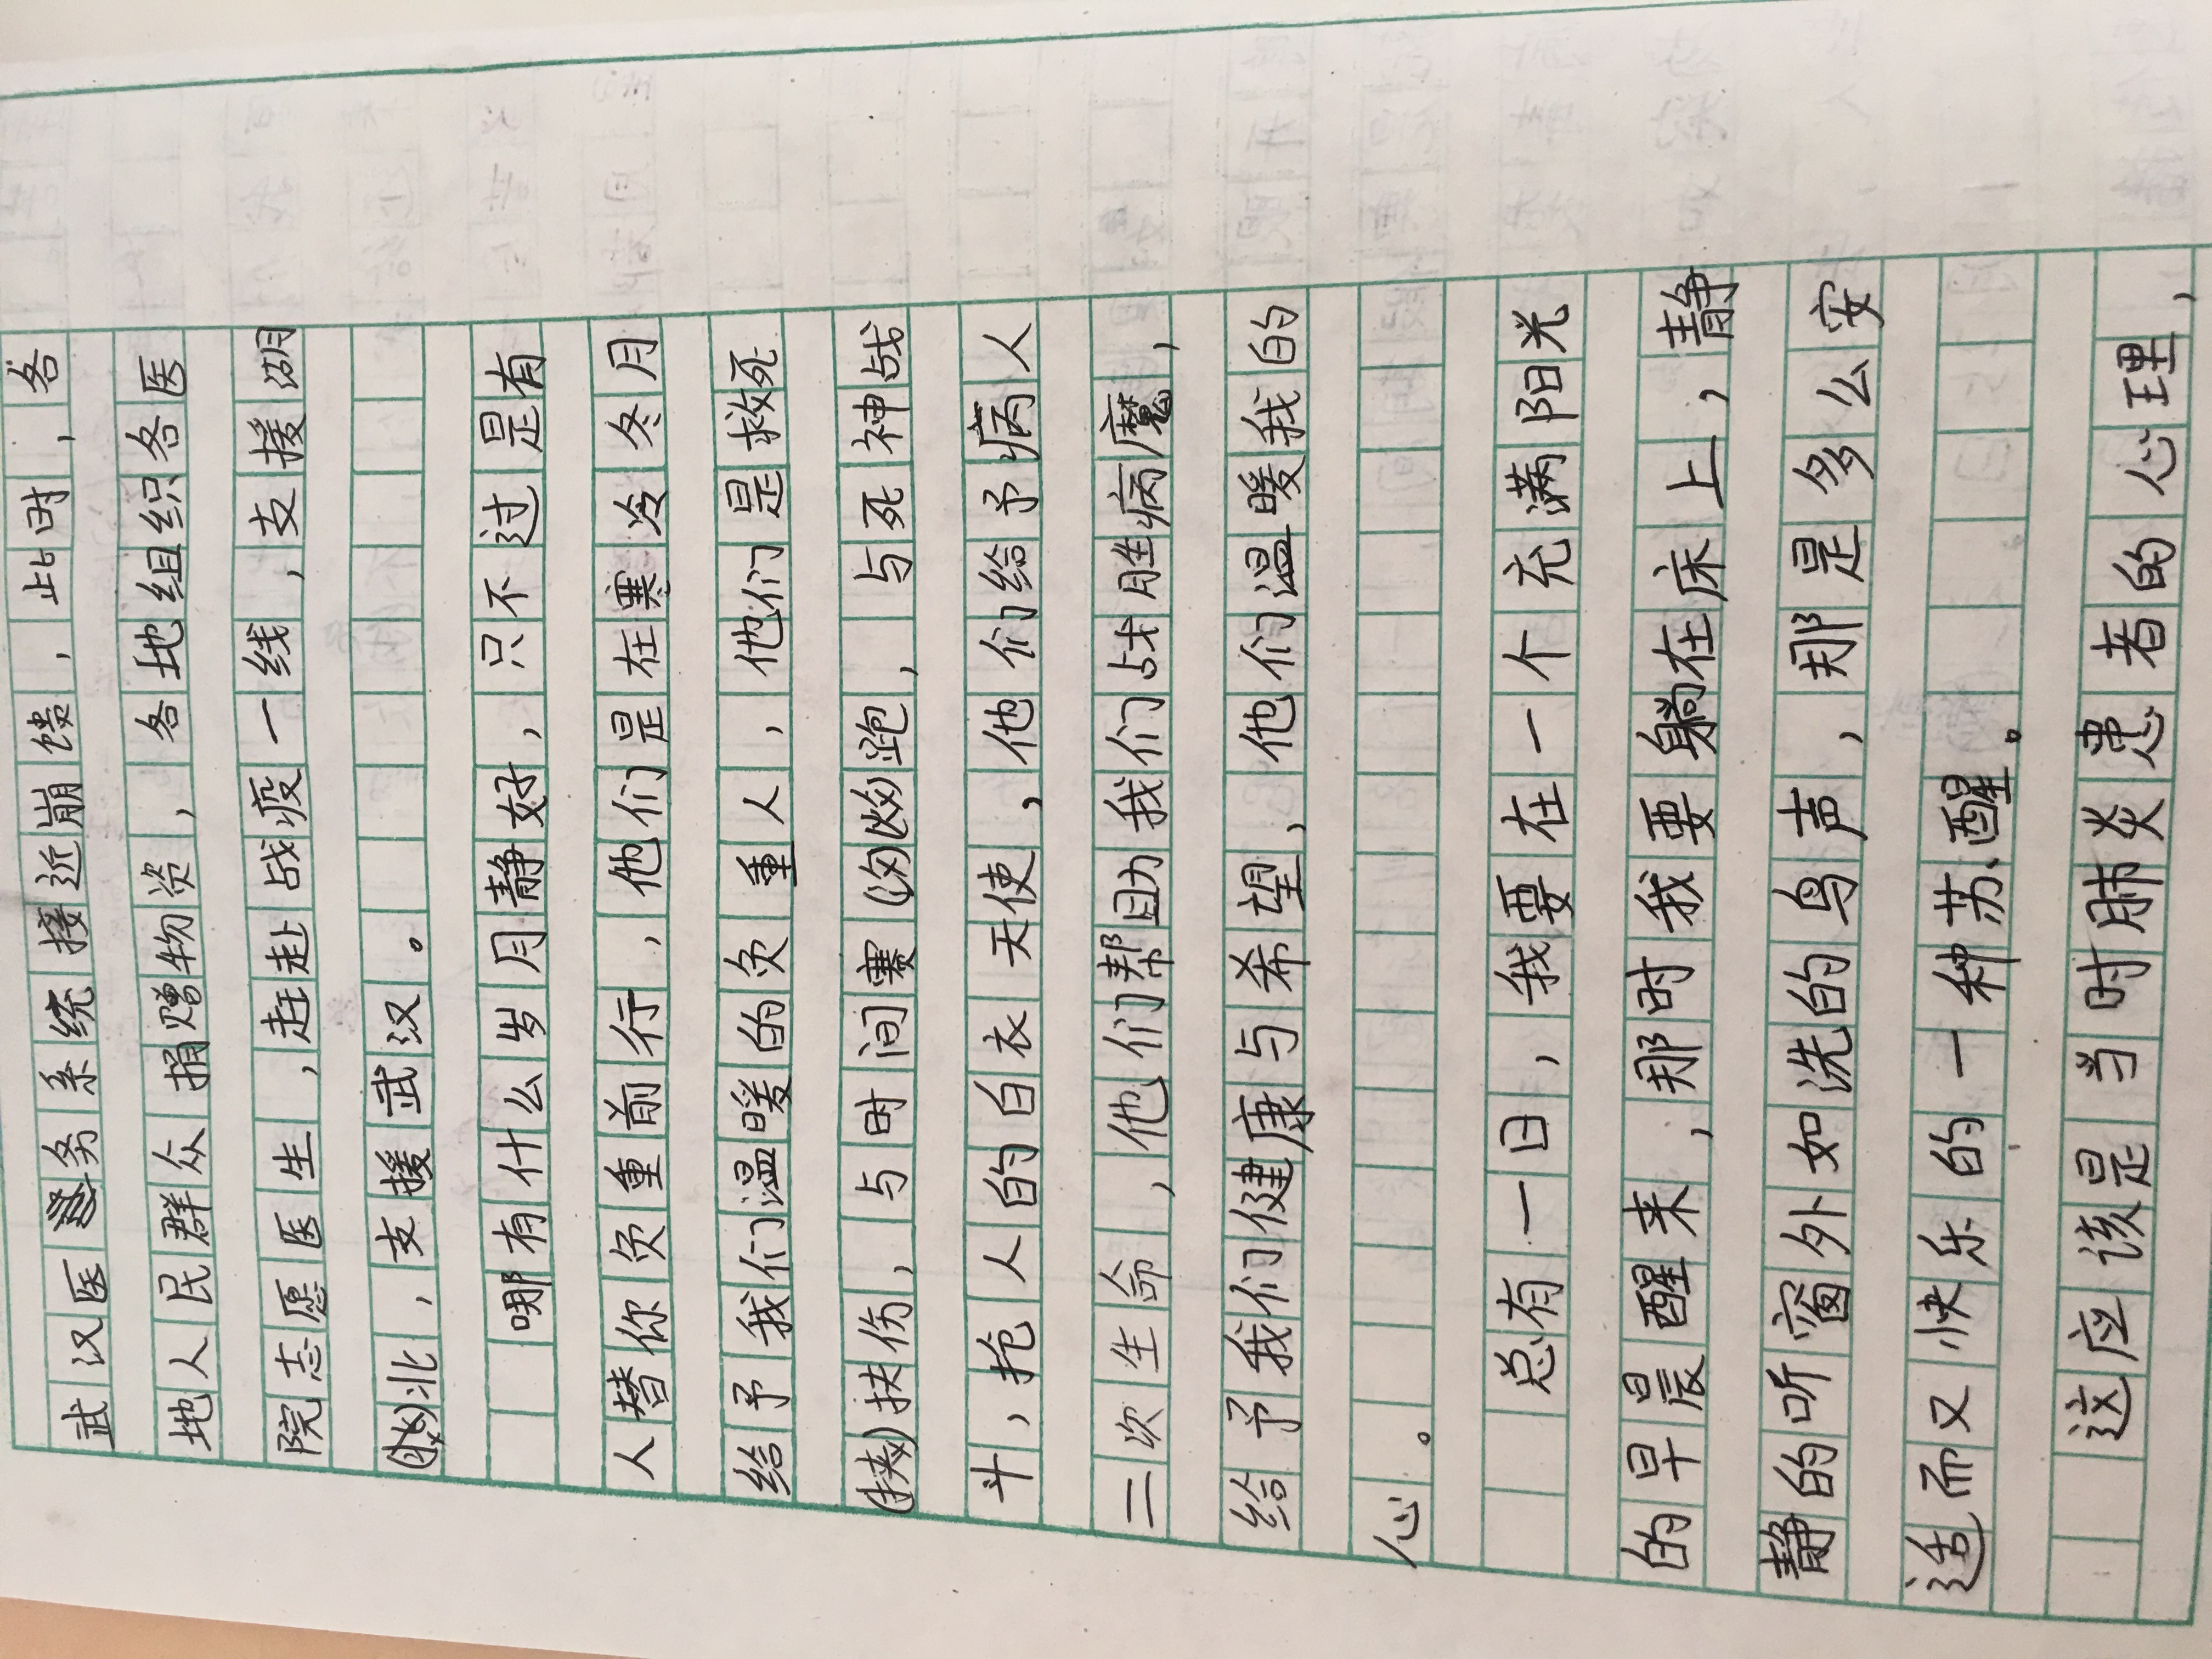 武汉医务系统接近崩馈，此时，各
地人民群众捐赠物资，各地组织各医
院志愿医生，赶赴战疫一线，支援湖
北，支援武汉。
哪有什么岁月静好，只不过是有
人替你负重前行，他们是在寒冷冬月
给予我们温暖的负重人，他们是救死
(挟)扶伤，与时间赛(汹)跑，与死神战
斗，抢人的白衣天使，他们给予病人
二次生命，他们帮助我们战胜病魔，
给予我们健康与希望，他们温暖我的
心。
总有一日，我要在一个充满阳光
的早晨醒来，那时我要躺在床上，静
静的听窗外如洗的鸟声，那是多么安
适而又快乐的一种苏醒。
这应该是当时肺炎患者的心理，